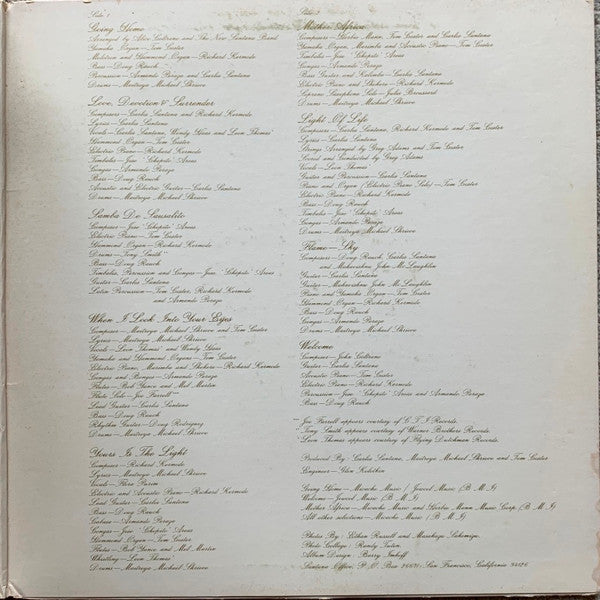 Side 1
Going Home
Arranged by Alice Coltrane and The New Santana Band
Yamaha Organ—Tom Coster
Mellotron and Hammond Organ—Richard Kermode
Bass—Doug Rauch
Percussion—Armando Peraza and Carlos Santana
Drums—Maitreya Michael Shrieve
Love, Devotion & Surrender
Composers—Carlos Santana and Richard Kermode
Lyrics—Carlos Santana
Vocals—Carlos Santana, Wendy Haas and Leon Thomas
Hammond Organ—Tom Coster
Electric Piano—Richard Kermode
Timbales—Jose "Chepito" Areas
Congas—Armando Peraza
Bass—Doug Rauch
Acoustic and Electric Guitar—Carlos Santana
Drums—Maitreya Michael Shrieve
Samba De Sausalito
Composer—Jose "Chepito" Areas
Electric Piano—Tom Coster
Hammond Organ—Richard Kermode
Drums—Tony Smith
Bass—Doug Rauch
Timbales, Percussion and Congas—Jose "Chepito" Areas
Guitar—Carlos Santana
Latin Percussion—Tom Coster, Richard Kermode
and Armando Peraza
When I Look Into Your Eyes
Composer—Maitreya Michael Shrieve and Tom Coster
Lyrics—Maitreya Michael Shrieve
Vocals—Leon Thomas and Wendy Haas
Yamaha and Hammond Organs—Tom Coster
Electric Piano, Marimba and Shekere—Richard Kermode
Congas and Bongos—Armando Peraza
Flutes—Bob Yance and Mel Martin
Flute Solo—Joe Farrell
Lead Guitar—Carlos Santana
Bass—Doug Rauch
Rhythm Guitar—Doug Rodriguez
Drums—Maitreya Michael Shrieve
Yours Is The Light
Composer—Richard Kermode
Lyrics—Maitreya Michael Shrieve
Vocals—Flora Purim
Electric and Acoustic Piano—Richard Kermode
Lead Guitar—Carlos Santana
Bass—Doug Rauch
Cabasa—Armando Peraza
Congas—Jose "Chepito" Areas
Hammond Organ—Tom Coster
Flutes—Bob Yance and Mel Martin
Whistling—Leon Thomas
Drums—Maitreya Michael Shrieve
Side 2
Mother Africa
Composers—Herbie Mann, Tom Coster and Carlos Santana
Yamaha Organ, Marimba and Acoustic Piano—Tom Coster
Timbales—Jose "Chepito" Areas
Congas—Armando Peraza
Bass Guitar and Kalimba—Carlos Santana
Electric Piano and Shekere—Richard Kermode
Soprano Saxophone Solo—Jules Broussard
Drums—Maitreya Michael Shrieve
Light Of Life
Composers—Carlos Santana, Richard Kermode and Tom Coster
Lyrics—Carlos Santana
Strings Arranged by Greg Adams and Tom Coster
Scored and Conducted by Greg Adams
Vocals—Leon Thomas
Guitar and Percussion—Carlos Santana
Piano and Organ (Electric Piano Solo)—Tom Coster
Electric Piano—Richard Kermode
Bass—Doug Rauch
Timbales—Jose "Chepito" Areas
Congas—Armando Peraza
Drums—Maitreya Michael Shrieve
Flame—Sky
Composers—Doug Rauch, Carlos Santana
and Mahavishnu John McLaughlin
Guitar—Carlos Santana
Guitar—Mahavishnu John McLaughlin
Piano and Yamaha Organ—Tom Coster
Hammond Organ—Richard Kermode
Bass—Doug Rauch
Congas—Armando Peraza
Drums—Maitreya Michael Shrieve
Welcome
Composer—John Coltrane
Guitar—Carlos Santana
Acoustic Piano—Tom Coster
Electric Piano—Richard Kermode
Percussion—Jose "Chepito" Areas and Armando Peraza
Drums—Maitreya Michael Shrieve
Bass—Doug Rauch
Joe Farrell appears courtesy of C.T.I Records.
Tony Smith appears courtesy of Warner Brothers Records.
Leon Thomas appears courtesy of Flying Dutchman Records.
Produced By—Carlos Santana, Maitreya Michael Shrieve and Tom Coster
Engineer—Glen Kolotkin
Going Home—Micocho Music / Jowcol Music (B.M.I)
Welcome—Jowcol Music (B.M.I)
Mother Africa—Micocho Music and Herbie Mann Music Corp. (B.M.I)
All other selections—Micocho Music (B.M.I)
Photos By—Ethan Russell and Masahisa Sakamizu
Photo Collage—Randy Tuten
Album Design—Barry Imhoff
Santana Office, P.O. Box 26671, San Francisco, California 94126